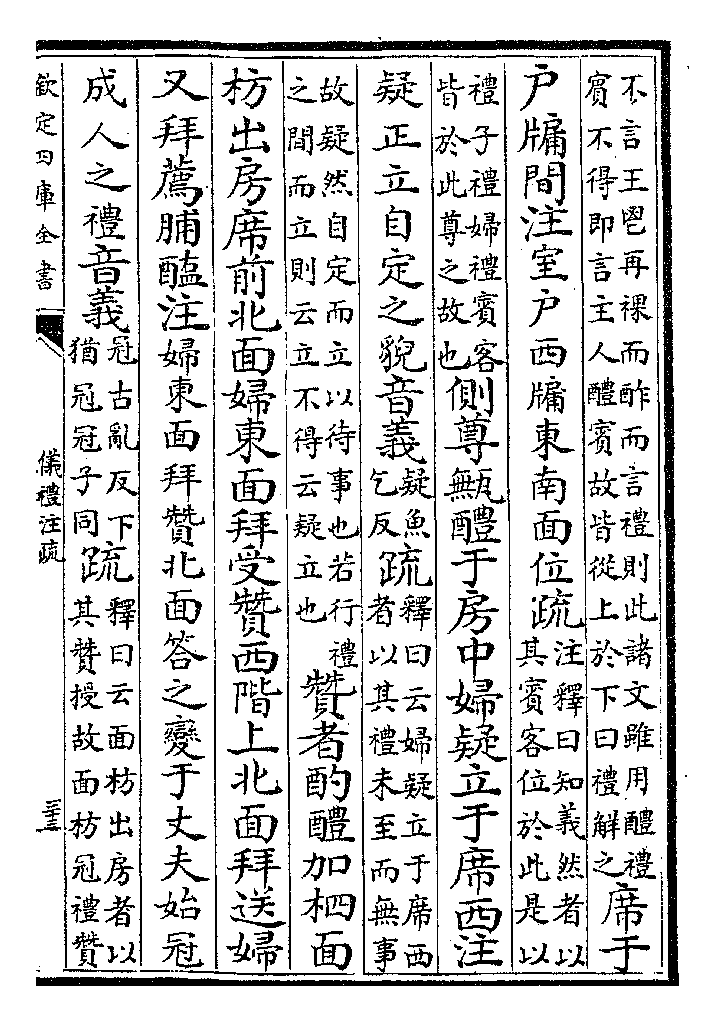 不言王鬯再祼而酢而言禮則此諸文雖用醴禮
賓不得即言主人醴賓故皆從上於下曰禮解之
席于
户牖間注室户西牖東南面位疏
注釋曰知義然者以
其賓客位於此是以
禮子禮婦禮賓客
皆於此尊之故也
側尊甒醴于房中婦疑立于席西注
疑正立自定之貌音義
疑魚
乞反
疏
釋曰云婦疑立于席西
者以其禮未至而無事
故疑然自定而立以待事也若行禮
之間而立則云立不得云疑立也
贊者酌醴加柶面
枋出房席前北面婦東面拜受贊西階上北面拜送婦
又拜薦脯醢注婦東面拜贊北面答之變于丈夫始冠
成人之禮音義
冠古亂反下
猶冠冠子同
疏
釋曰云面枋出房者以
其贊授故面枋冠禮贊
欽定四庫全書
儀禮注疏
三十三